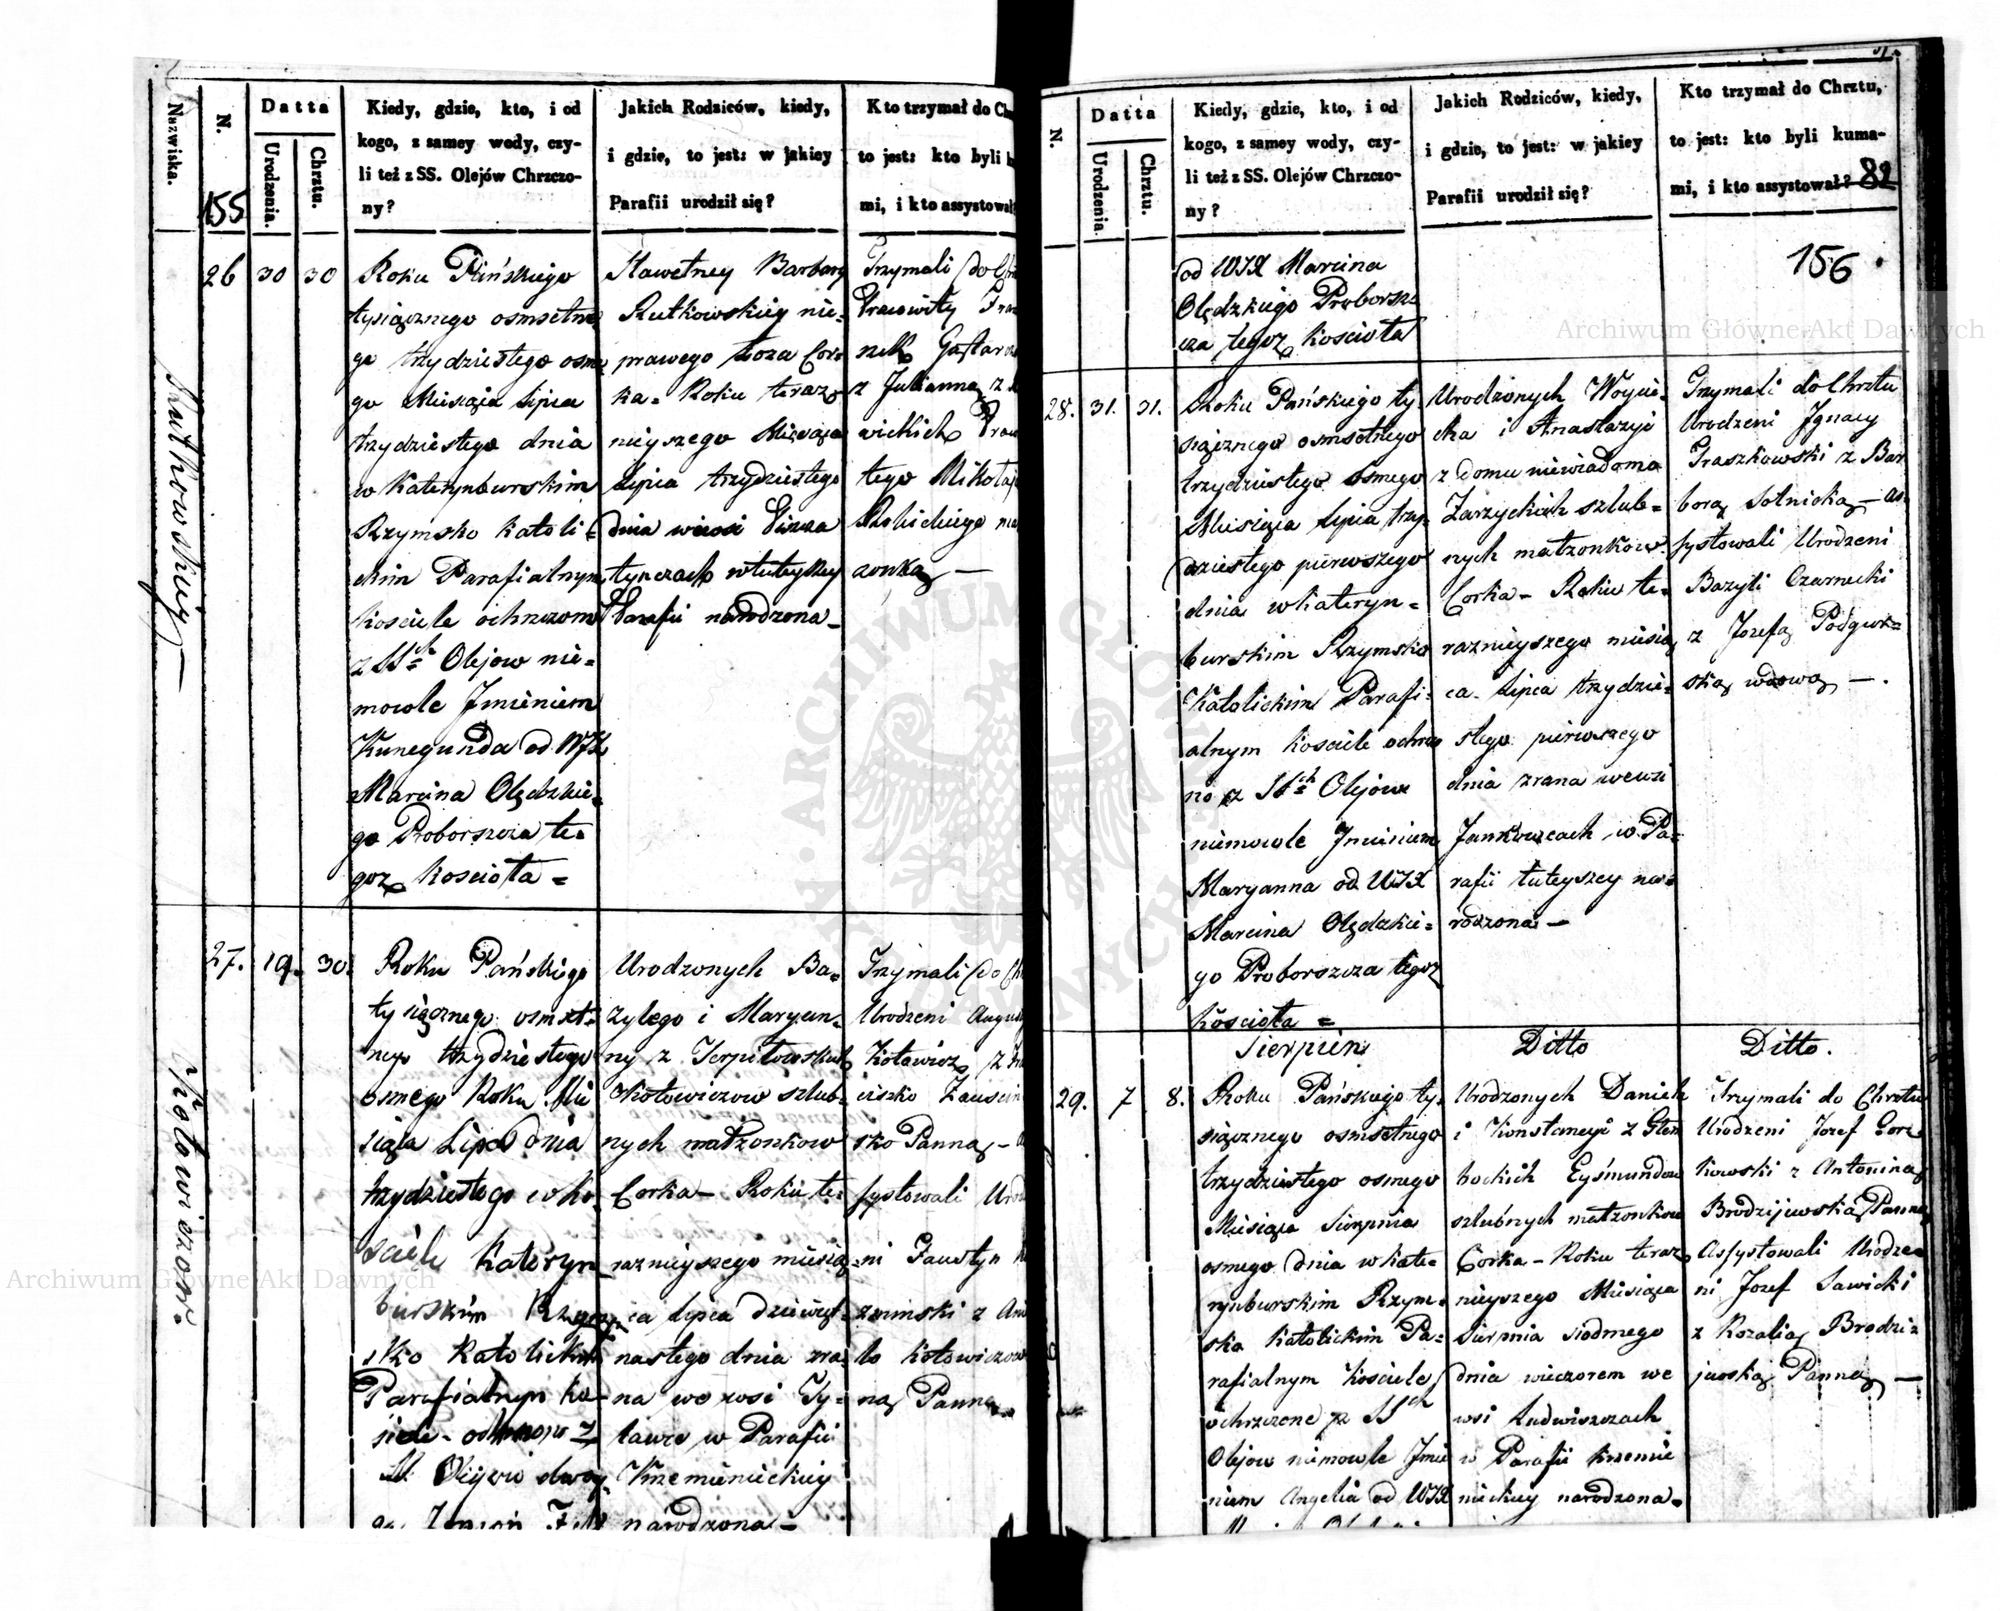 Nazwiska.
N.
155
Datta
Urodzenia.
Chrztu.
Kiedy, gdzie, kto, i od
kogo, z samey wody, czy-
li też z SS. Olejów Chrzczo-
ny?
Jakich Rodziców, kiedy,
i gdzie, to jest: w jakiey
Parafii urodził się?
Kto trzymał do Ch
to jest: kto byli k
mi, i kto assystował?
Rutkowskiey —
26
30
30
Roku Pańskiego
tysiącznego osmsetne
go trzydziestego osme
go Miesiąca Lipca
trzydziestego dnia
w Katerynburskim
Rzymsko Katoli=
ckim Parafialnym
Kosciele ochrzczono
z SSch Olejow nie=
mowle Jmieniem
Kunegunda od WJX
Marcina Olędzkie=
go Proborszcza te=
goz Kosciola =
Slawetney Barbary
Rutkowskiey nie=
prawego Łoza Cor=
ka - Roku teraz
nieyszego Miesiąca
Lipca trzydziestego
dnia wewsi
w tuteyszey
Parafii narodzona —
Trzymali do
Pracowity
z Julianną z
wickich
tego Mikołaj
Rokickiego
zonką —
Kotowiczow.
27.
19.
30.
Roku Pańskiego
tysiącznego osmset=
nego trzydziestego
osmego Roku Mie
siąca Lipca dnia
trzydziestego w Ko
sciele Kateryn
burskim Rzym
sko Katolickim
Parafialnym Ko-
SS. Olejow
Urodzonych Ba=
zylego i Maryan=
ny z Terpiłowskich
Kotowiczow szlub=
nych małzonkow
Corka — Roku te=
raznieyszego miesią
ca Lipca dziewięt=
nastego dnia zra
na we wsi Ty=
lawce w Parafii
Krzemienieckiey
narodzona —
Trzymali do
Urodzeni August
Kotowicz z
ciszko
sko Panną —
systowali Urod
ni Faustyn
zminski z
lo Kotowiczow
ną Panną
N.
Datta
Urodzenia.
Chrztu.
Kiedy, gdzie, kto, i od
kogo, z samey wody, czy-
li też z SS. Olejów Chrzczo-
ny?
Jakich Rodziców, kiedy,
i gdzie, to jest: w jakiey
Parafii urodził się?
Kto trzymał do Chrztu,
to jest: kto byli kuma-
mi, i kto assystował?
82
156
od WJX Marcina
Olędzkiego Proborsz
cza tegoz Kosciola
28.
31.
31.
Roku Pańskiego ty=
siącznego osmsetnego
trzydziestego osmego
Miesiąca Lipca trzy=
dziestego pierwszego
dnia w Kateryn=
burskim Rzymsko
Katolickim Parafi=
alnym Kosciele ochrzczo
no z SSch Olejow
niemowle Jmieniem
Maryanna od WJX
Marcina Olędzkie=
go Proborszcza tegoz
Kosciola =
Urodzonych Woycie=
cha i Anastazyi
z domu niewiadoma
Zarzyckich szlub=
nych małzonkow
Corka — Roku te=
raznieyszego miesią
ca Lipca trzydzie=
stego pierwszego
dnia zrana wewsi
Jankowcach w Pa=
rafii tuteyszey na=
rodzona —
Trzymali do Chrztu
Urodzeni Jgnacy
Traszkowski z Bar
barą Solnicką — as
systowali Urodzeni
Bazyli Czarnecki
z Jozefą Podgur=
ską wdową —.
Sierpien
Ditto
Ditto.
29.
7
8.
Roku Pańskiego ty=
siącznego osmsetnego
trzydziestego osmego
Miesiąca Sierpnia
osmego dnia w Kate=
rynburskim Rzym=
sko Katolickim Pa=
rafialnym Kosciele
ochrzczone z SSch
Olejow niemowle Jmie
niem Angelia od WJX
Urodzonych Daniela
i Konstancyi z Glem
bockich Eyśmundow
szlubnych małzonkow
Corka — Roku teraz
nieyszego Miesiąca
Sierpnia siodmego
dnia wieczorem we
wsi Ludwiszczach
w Parafii Krzemie
nieckiey narodzona —
Trzymali do Chrztu
Urodzeni Jozef Gorz
kowski z Antoniną
Brodzijewską Panną
Assystowali Urodze=
ni Jozef Sawicki
z Rozalią Brodzi=
jewską Panną —
Archiwum Główne Akt Dawnych
Archiwum Główne Akt Dawnych